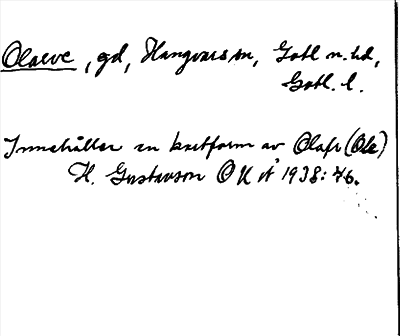 Olarve, gd, Hangvar sn, Gotl n. hd,
Gotl. l.
Innehåller en kortform av Olafr (Ole)
H. Gustavson OUÅ 1938: 46.